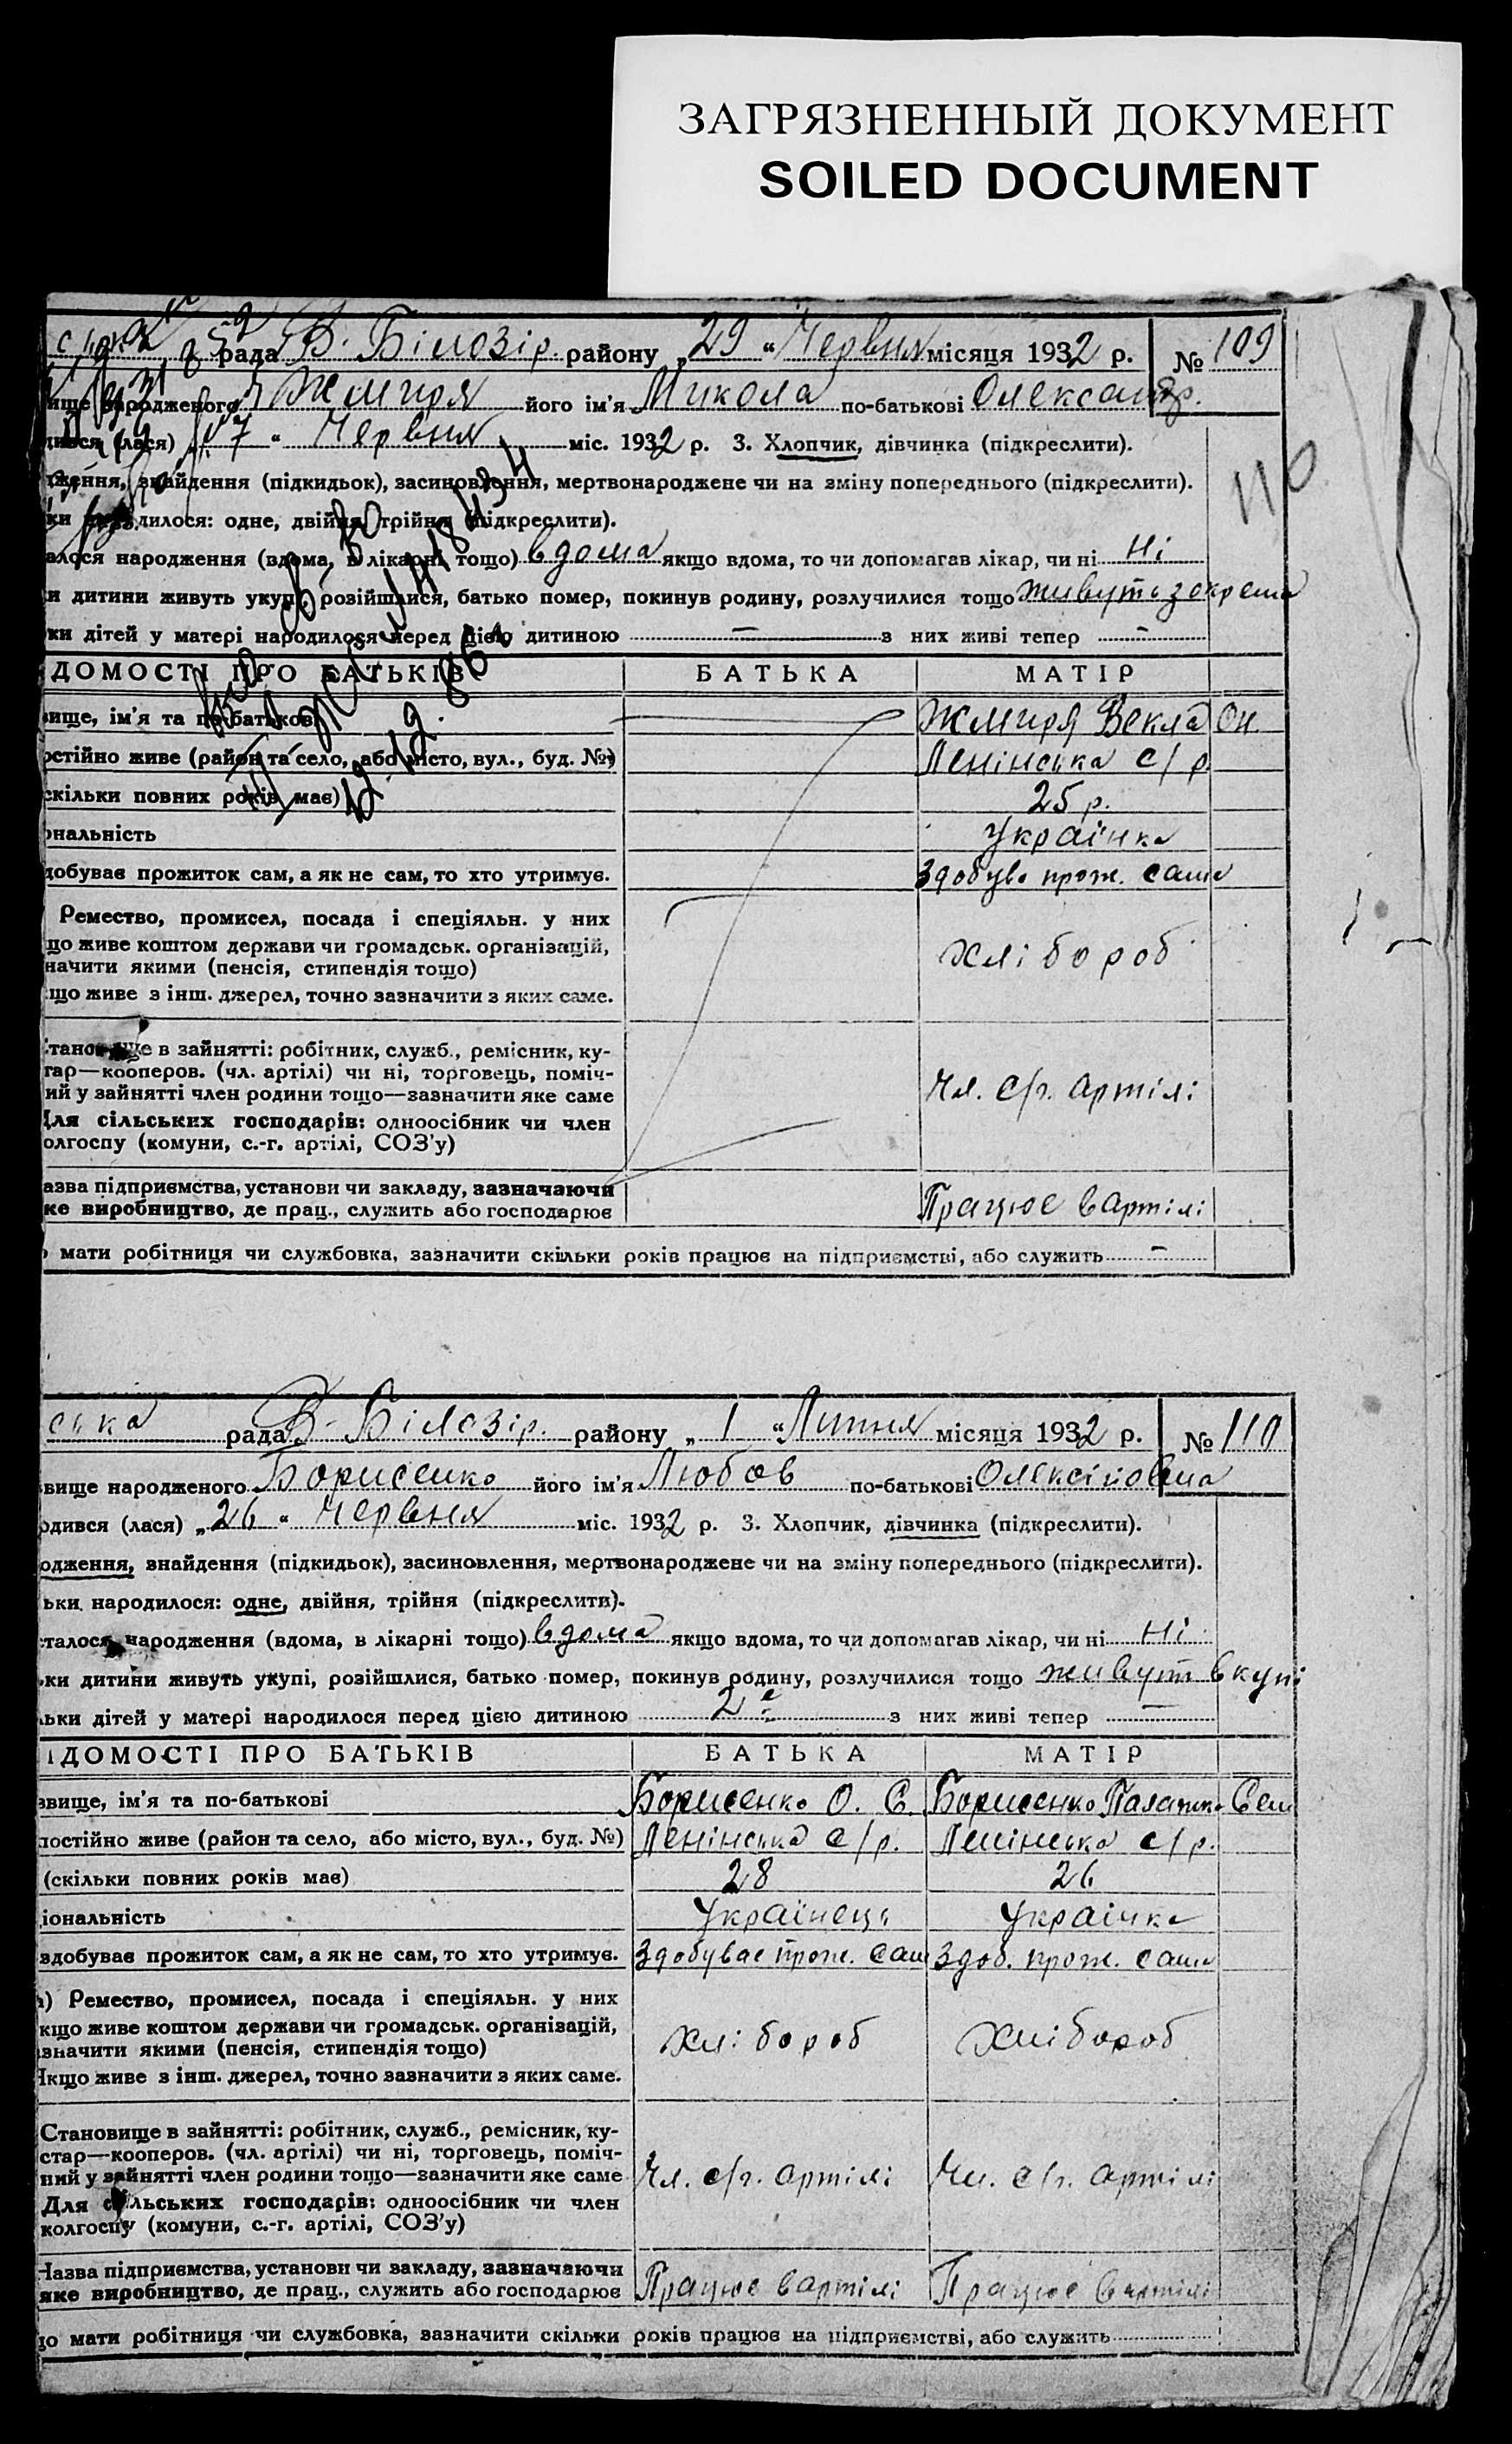 ЗАГРЯЗНЕННЫЙ ДОКУМЕНТ
SOILED DOCUMENT
рада В. Білозір. району „29“ Червня місяця 1932 р. № 109
ище народженого Жмиря його ім'я Микола по-батькові Олександр.
дився (лася) 17 “ Червня міс. 1932 р. 3. Хлопчик, дівчинка (підкреслити).
дження, знайдення (підкидьок), засиновлення, мертвонароджене чи на зміну попереднього (підкреслити).
110
ки народилося: одне, двійня, трійня (підкреслити).
алося народження (вдома, в лікарні тощо) вдома якщо вдома, то чи допомагав лікар, чи ні ні
ки дитини живуть укупі, розійшлися, батько помер, покинув родину, розлучилися тощо живуть зокрема
ки дітей у матері народилося перед цією дитиною — з них живі тепер —
ДОМОСТІ ПРО БАТЬКІВ БАТЬКА МАТІР
вище, ім'я та по-батькові Жмиря Векла Он.
остійно живе (район та село, або місто, вул., буд. №) Ленінська с/р.
скільки повних років має) 25 р.
ональність Українка
добуває прожиток сам, а як не сам, то хто утримує. Здобува прож. сама
Ремество, промисел, посада і спеціяльн. у них
що живе коштом держави чи громадськ. організацій,
начити якими (пенсія, стипендія тощо) хлібороб
що живе з інш. джерел, точно зазначити з яких саме.
Становище в зайнятті: робітник, служб., ремісник, ку-
тар—кооперов. (чл. артілі) чи ні, торговець, поміч-
ий у зайнятті член родини тощо—зазначити яке саме Чл. с/г. артілі
Для сільських господарів: одноосібник чи член
олгоспу (комуни, с.-г. артілі, СОЗ'у)
азва підприємства, установи чи закладу, зазначаючи
ке виробництво, де прац., служить або господарює Працює в артілі
о мати робітниця чи службовка, зазначити скільки років працює на підприємстві, або служить —
ська рада В-Білозір. району „1“ Липня місяця 1932 р. № 110
вище народженого Борисенко його ім'я Любов по-батькові Олексійовна
одився (лася) „26“ Червня міс. 1932 р. 3. Хлопчик, дівчинка (підкреслити).
одження, знайдення (підкидьок), засиновлення, мертвонароджене чи на зміну попереднього (підкреслити).
ьки народилося: одне, двійня, трійня (підкреслити).
сталося народження (вдома, в лікарні тощо) вдома якщо вдома, то чи допомагав лікар, чи ні ні
ки дитини живуть укупі, розійшлися, батько помер, покинув родину, розлучилися тощо живут вкупі
льки дітей у матері народилося перед цією дитиною 2є з них живі тепер —
ІДОМОСТІ ПРО БАТЬКІВ БАТЬКА МАТІР
звище, ім'я та по-батькові Борисенко О. С. Борисенко Палажка Сем
постійно живе (район та село, або місто, вул., буд. №) Ленінська с/р. Ленінська с/р.
(скільки повних років має) 28 26
іональність Українець Українка
здобуває прожиток сам, а як не сам, то хто утримує. Здобуває прож. сам Здоб. прож. сама
а) Ремество, промисел, посада і спеціяльн. у них
кщо живе коштом держави чи громадськ. організацій,
азначити якими (пенсія, стипендія тощо) хлібороб хлібороб
Якщо живе з інш. джерел, точно зазначити з яких саме.
Становище в зайнятті: робітник, служб., ремісник, ку-
стар—кооперов. (чл. артілі) чи ні, торговець, поміч-
ний у зайнятті член родини тощо—зазначити яке саме Чл. с/г. артілі Чл. с/г. артілі
Для сільських господарів: одноосібник чи член
колгоспу (комуни, с.-г. артілі, СОЗ'у)
Назва підприємства, установи чи закладу, зазначаючи
яке виробництво, де прац., служить або господарює Працює в артілі Працює в артілі
що мати робітниця чи службовка, зазначити скільки років працює на підприємстві, або служить